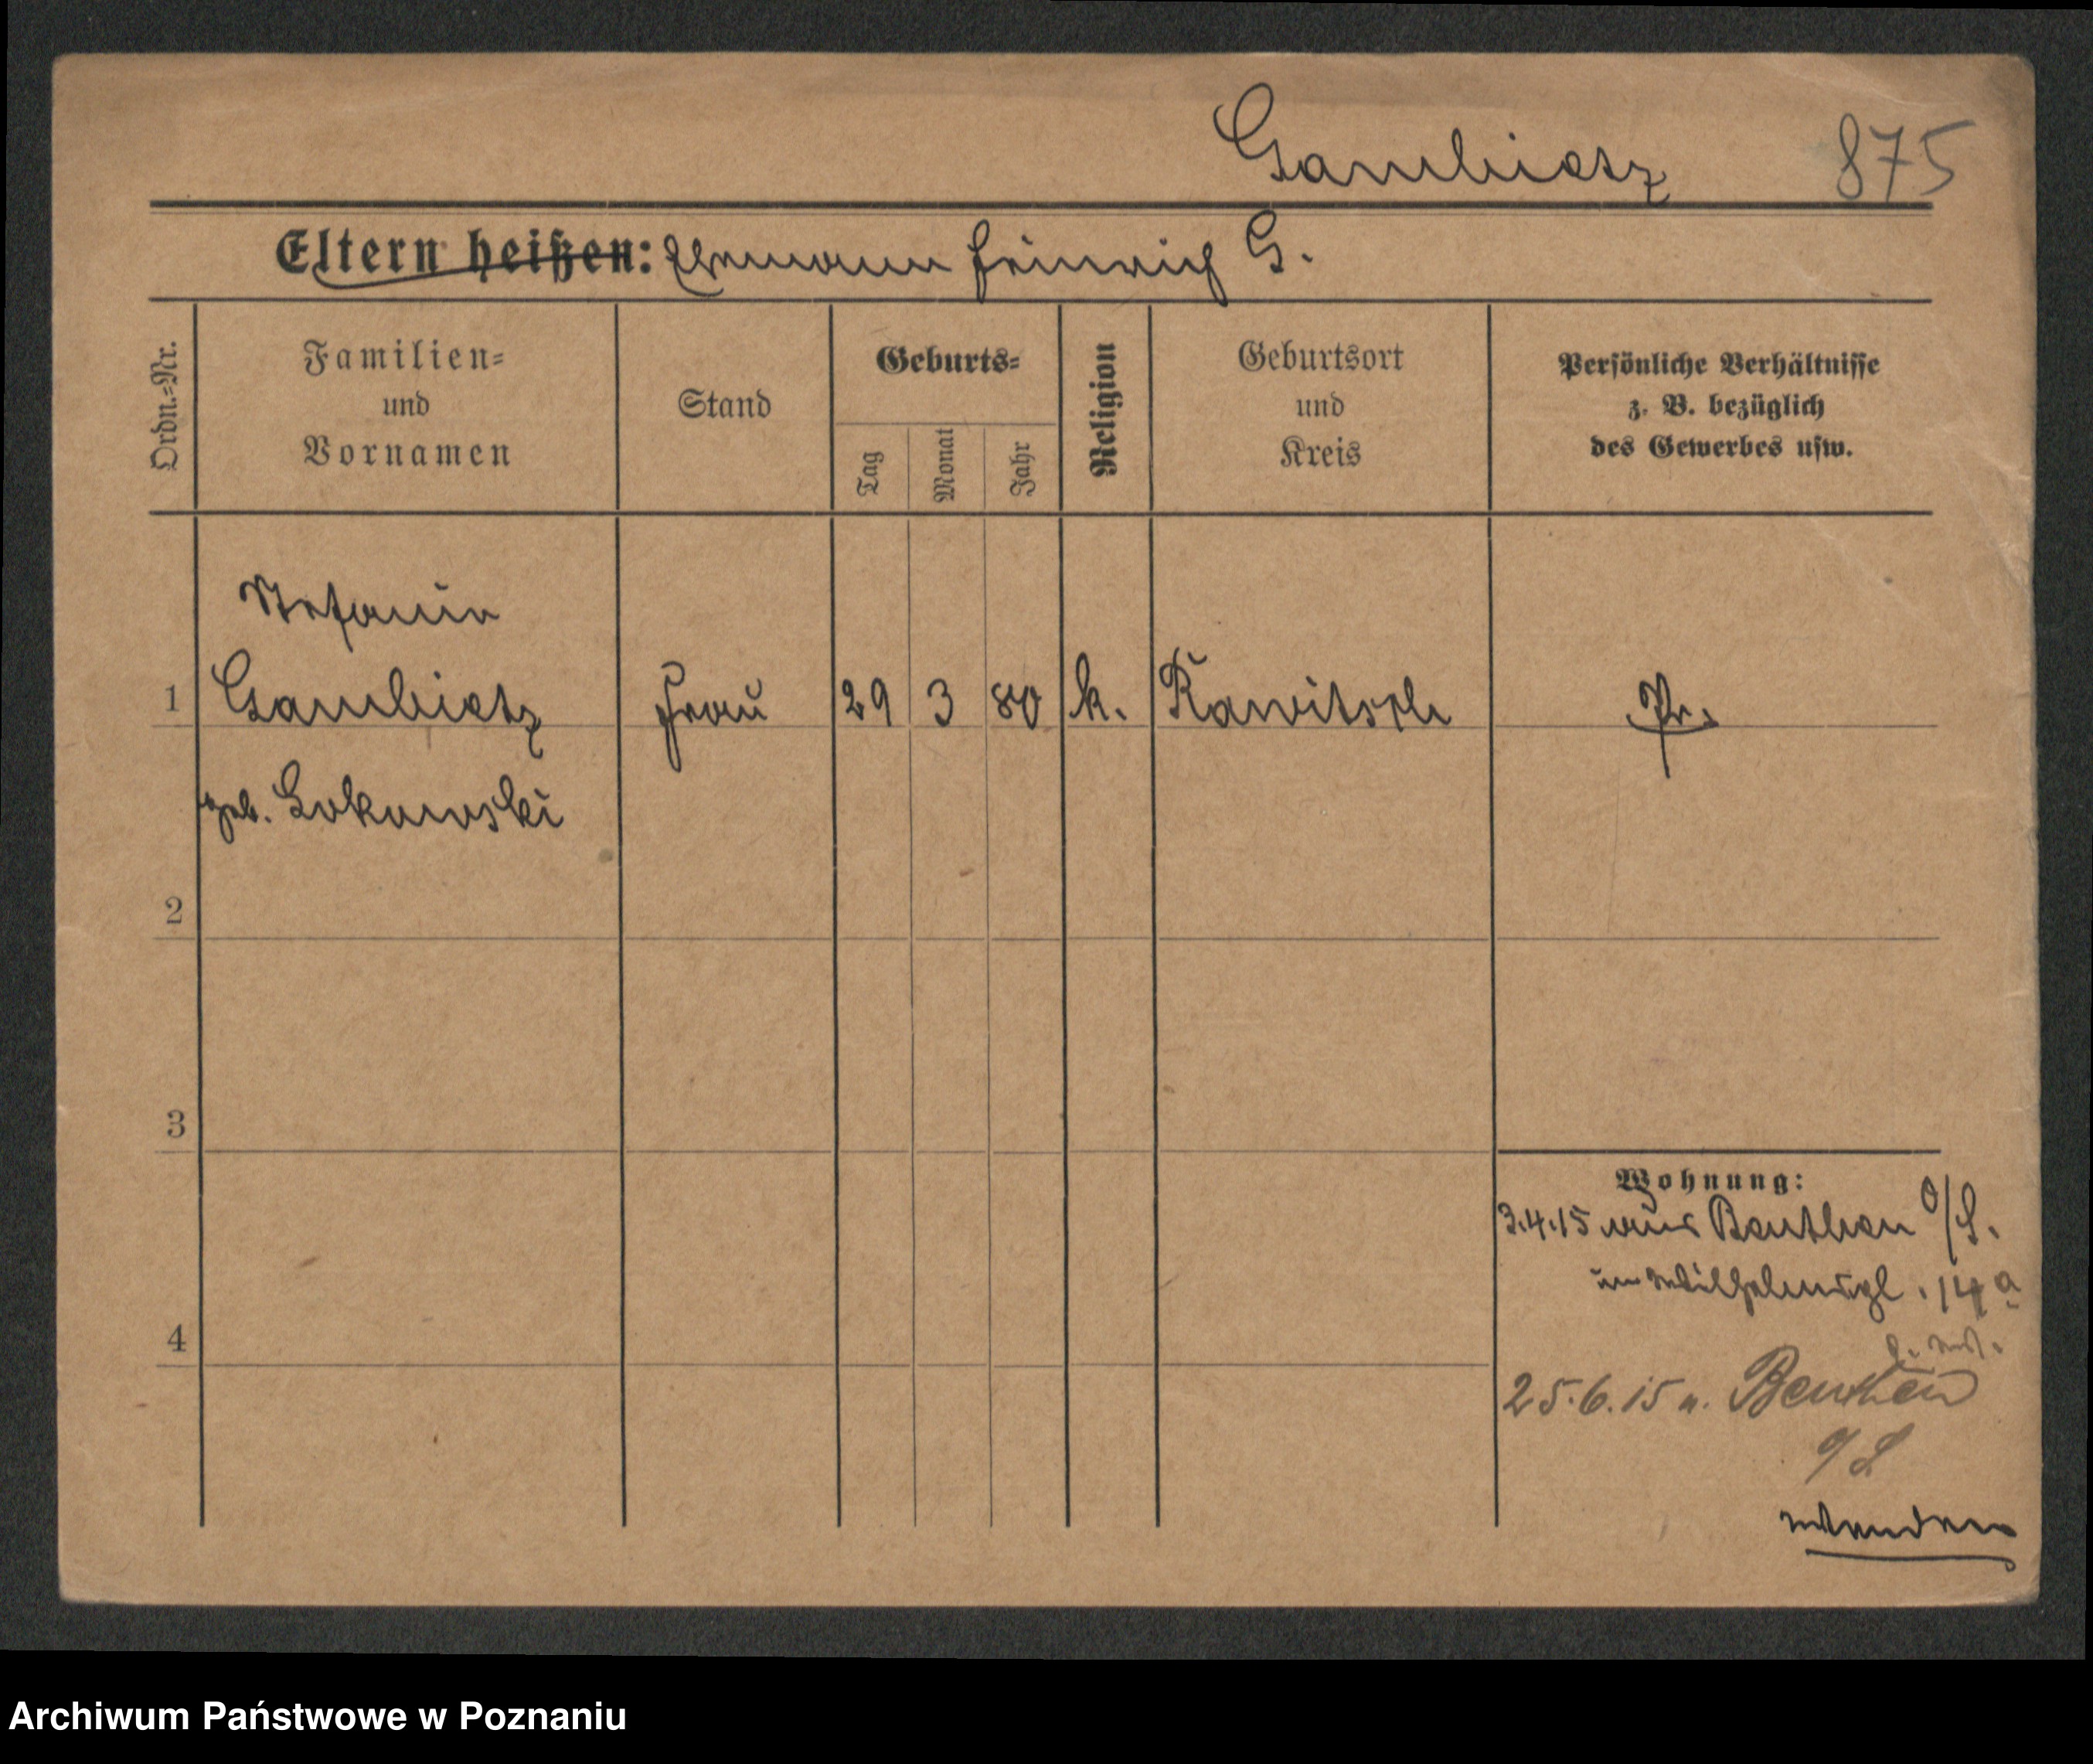 Gambietz 875
Eltern heißen: Ehemann Heinrich G.
Ordn.=Nr.
Familien=
und
Vornamen
Stand
Geburts=
Tag
Monat
Jahr
Religion
Geburtsort
und
Kreis
Persönliche Verhältnisse
z. B. bezüglich
des Gewerbes usw.
Stefanie
1 Gambietz Frau 29 3 80 k. Rawitsch Pr.
geb. Lokowski
2
3
4
Wohnung:
3.4.15 aus Beuthen O/S.
14a
25.6.15 n. Beuthen
O/S
Wenden
Archiwum Państwowe w Poznaniu